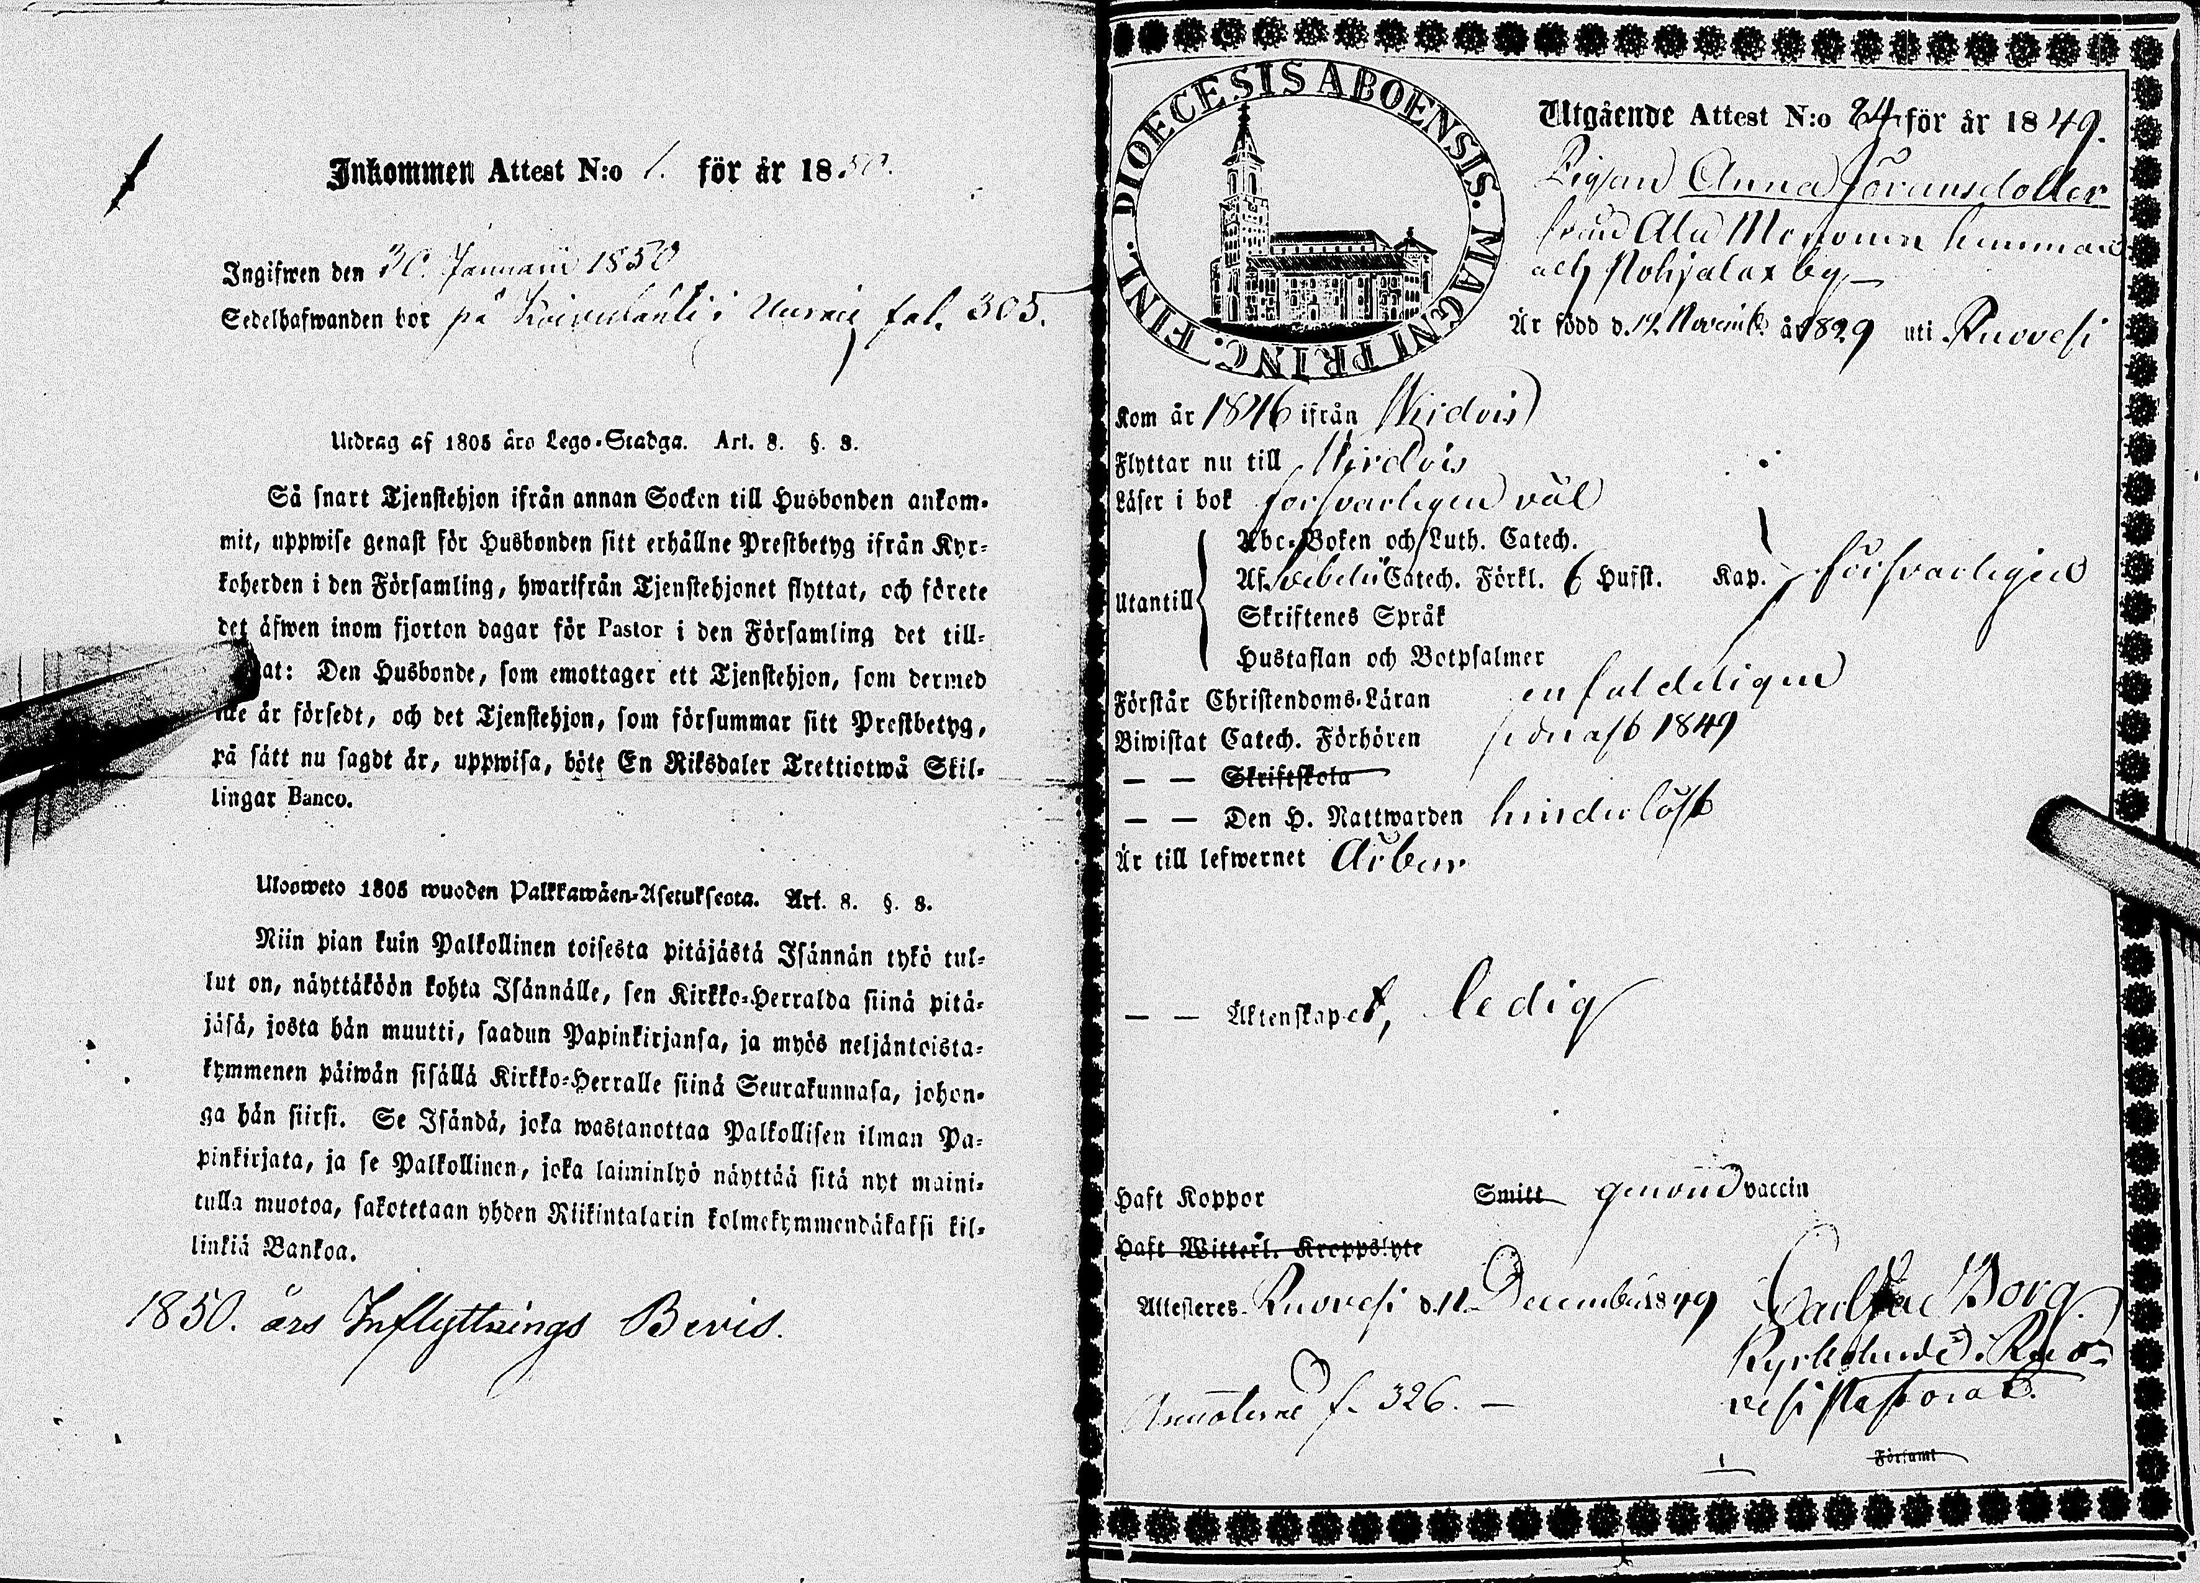 Inkommen Attest N:o 1. för år 1850.
Ingifwen den 30. Januarii 1850
Sedelhafwanden bor på i fol. 305.
Utdrag af 1805 års Lego-Stadga. Art. 8. §. 8.
Så snart Tjenstehjon ifrån annan Socken till Husbonden ankom-
mit, uppwise genast för Husbonden sitt erhållne Prestbetyg ifrån Kyr-
koherden i den Församling, hwarifrån Tjenstehjonet flyttat, och förete
det äfwen inom fjorton dagar för Pastor i den Församling det till-
at: Den Husbonde, som emottager ett Tjenstehjon, som dermed
icke är försedt, och det Tjenstehjon, som försummar sitt Prestbetyg,
på sätt nu sagdt är, uppwisa, böte En Riksdaler Trettiotwå Skil-
lingar Banco.
Ulosweto 1805 wuoden Palkkawäen-Asetuksesta. Art. 8. §. 8.
Niin pian kuin Palkollinen toisesta pitäjästä Isännän tykö tul-
lut on, näyttäköön kohta Isännälle, sen Kirkko-Herralda siinä pitä-
jäsä, josta hän muutti, saadun Papinkirjansa, ja myös neljäntoista-
kymmenen päiwän sisällä Kirkko-Herralle siinä Seurakunnasa, johon-
ga hän siirsi. Se Isändä, joka wastanottaa Palkollisen ilman Pa-
pinkirjata, ja se Palkollinen, joka laiminlyö näyttää sitä nyt maini-
tulla muotoa, sakotetaan yhden Riikintalarin kolmekymmendäkaksi kil-
linkiä Bankoa.
1850. års Inflyttnings Bevis.
DIOECESIS ABOENSIS. MAGNI PRINC. FINL.
Utgående Attest N:o 24 för år 1849.
Pigan Anna Göransdotter
från Ala hemman
och Pohjalax by
Är född d. 12 Novemb. år 1829 uti Ruovesi
Kom år 1846 ifrån Wirdois
Flyttar nu till Wirdois
Läser i bok försvarligen väl
Abc-Boken och Luth. Catech.
Utantill Af Svebelii Catech. Förkl. 6 Hufst. Kap. försvarligen
Skriftenes Språk
Hustaflan och Botpsalmer
Förstår Christendoms-Läran enfaldeligen
Biwistat Catech. Förhören sednast 1849
— — Skriftskola
— — Den H. Nattwarden hinderlöst
Är till lefwernet ärbar
— — Äktenskapet, ledig
Haft Koppor Smitt genom vaccin
Haft Witterl. Kroppslyte
Attesteres Ruovesi d. 11 December 1849 Borg
Kyrkoherde i Ruo-
vesi Pastorat.
Annoterad f. 326. —
Församl